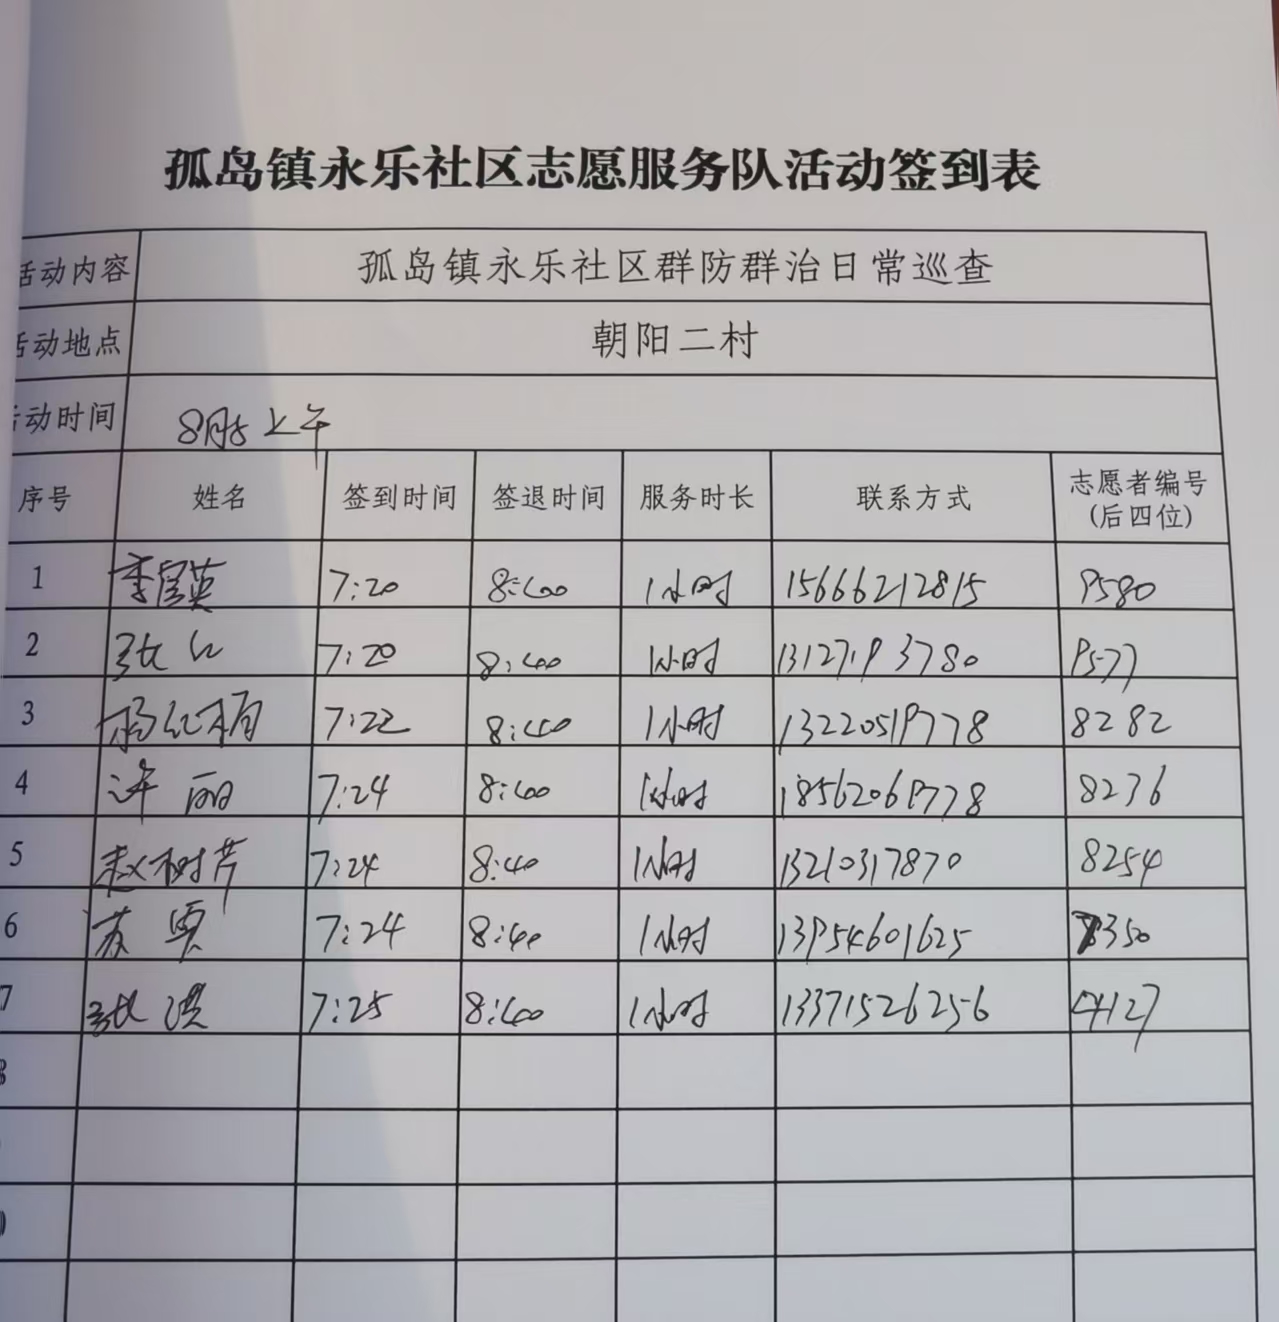 孤岛镇永乐社区志愿服务队活动签到表
活动内容 孤岛镇永乐社区群防群治日常巡查
活动地点 朝阳二村
活动时间 8月5上午
序号 姓名 签到时间 签退时间 服务时长 联系方式 志愿者编号
(后四位)
1 李 英 7:20 8:40 1小时 15666212815 9580
2 张红 7:20 8:40 1小时 13127193780 9577
3 杨红梅 7:22 8:40 1小时 13220519778 8282
4 许丽 7:24 8:40 1小时 18562069778 8236
5 赵树芹 7:24 8:40 1小时 13210317870 8254
6 苏 7:24 8:40 1小时 13954601625 350
7 张洪 7:25 8:40 1小时 13371526256 4127